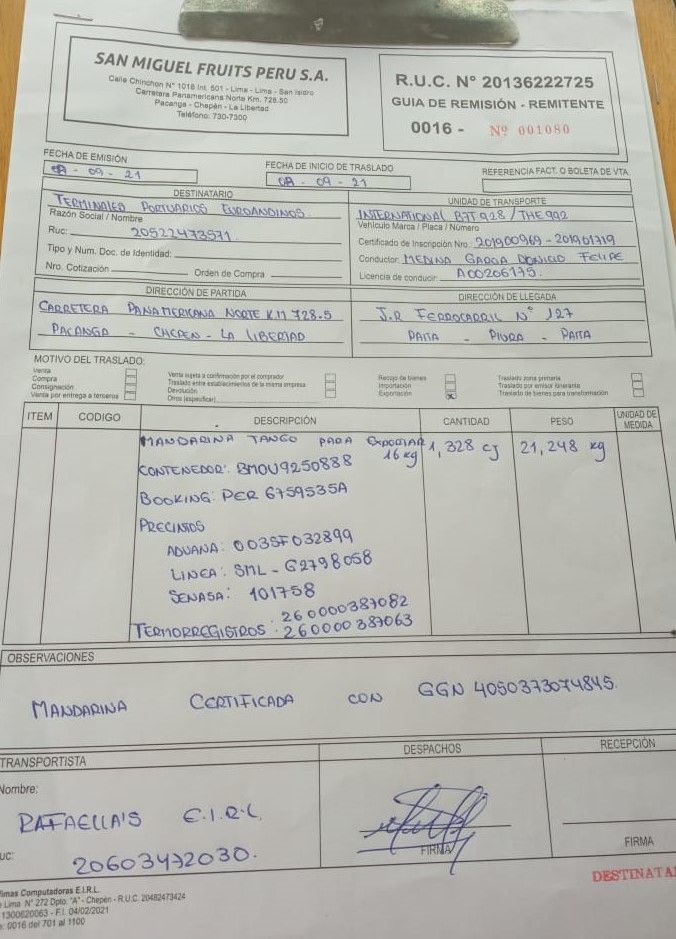 SAN MIGUEL FRUITS PERU S.A.
Calle Chinchon N° 1018 Int. 501 - Lima - Lima - San Isidro
Carretera Panamericana Norte Km. 728.50
Pacanga - Chepén - La Libertad
Teléfono: 730-7300
R.U.C. N° 20136222725
GUIA DE REMISIÓN - REMITENTE
0016 - Nº 001080
FECHA DE EMISIÓN
- 09 - 21
FECHA DE INICIO DE TRASLADO
- 09 - 21
REFERENCIA FACT. O BOLETA DE VTA.
DESTINATARIO
TERMINALES PORTUARIOS EUROANDINOS
Razón Social / Nombre
Ruc: 20522473571
Tipo y Num. Doc. de Identidad:
Nro. Cotización Orden de Compra
UNIDAD DE TRANSPORTE
INTERNATIONAL B7T928 / THE992
Vehículo Marca / Placa / Número
Certificado de Inscripción Nro.: 201900969 - 201901719
Conductor: MEDINA FELIPE
Licencia de conducir: A00206175
DIRECCIÓN DE PARTIDA
CARRETERA PANAMERICANA NORTE KM 728.5
PACANGA - CHEPEN - LA LIBERTAD
DIRECCIÓN DE LLEGADA
J.R FERROCARRIL N° 127
PAITA - PIURA - PAITA
MOTIVO DEL TRASLADO:
Venta
Compra
Consignación
Venta por entrega a terceros
Venta sujeta a confirmación por el comprador
Traslado entre establecimientos de la misma empresa
Devolución
Otros (especificar)
Recojo de bienes
Importación
Exportación x
Traslado zona primaria
Traslado por emisor itinerante
Traslado de bienes para transformación
ITEM CODIGO DESCRIPCIÓN CANTIDAD PESO UNIDAD DE MEDIDA
MANDARINA TANGO PARA EXPORTAR 16 kg 1,328 CJ 21,248 kg
CONTENEDOR: BMOU9250888
BOOKING: PER 6759535A
PRECINTOS
ADUANA: 003SF032899
LINEA: SML - G2798058
SENASA: 101758
260000387082
TERMORREGISTROS: 260000387063
OBSERVACIONES
MANDARINA CERTIFICADA CON GGN 4050373074845.
TRANSPORTISTA
Nombre:
RAFAELLA'S E.I.R.L.
uc: 20603472030.
DESPACHOS
FIRMA
RECEPCIÓN
FIRMA
DESTINATA
limas Computadoras E.I.R.L.
Lima N° 272 Dpto. "A" - Chepén - R.U.C. 20482473424
1300620063 - F.I. 04/02/2021
: 0016 del 701 al 1100